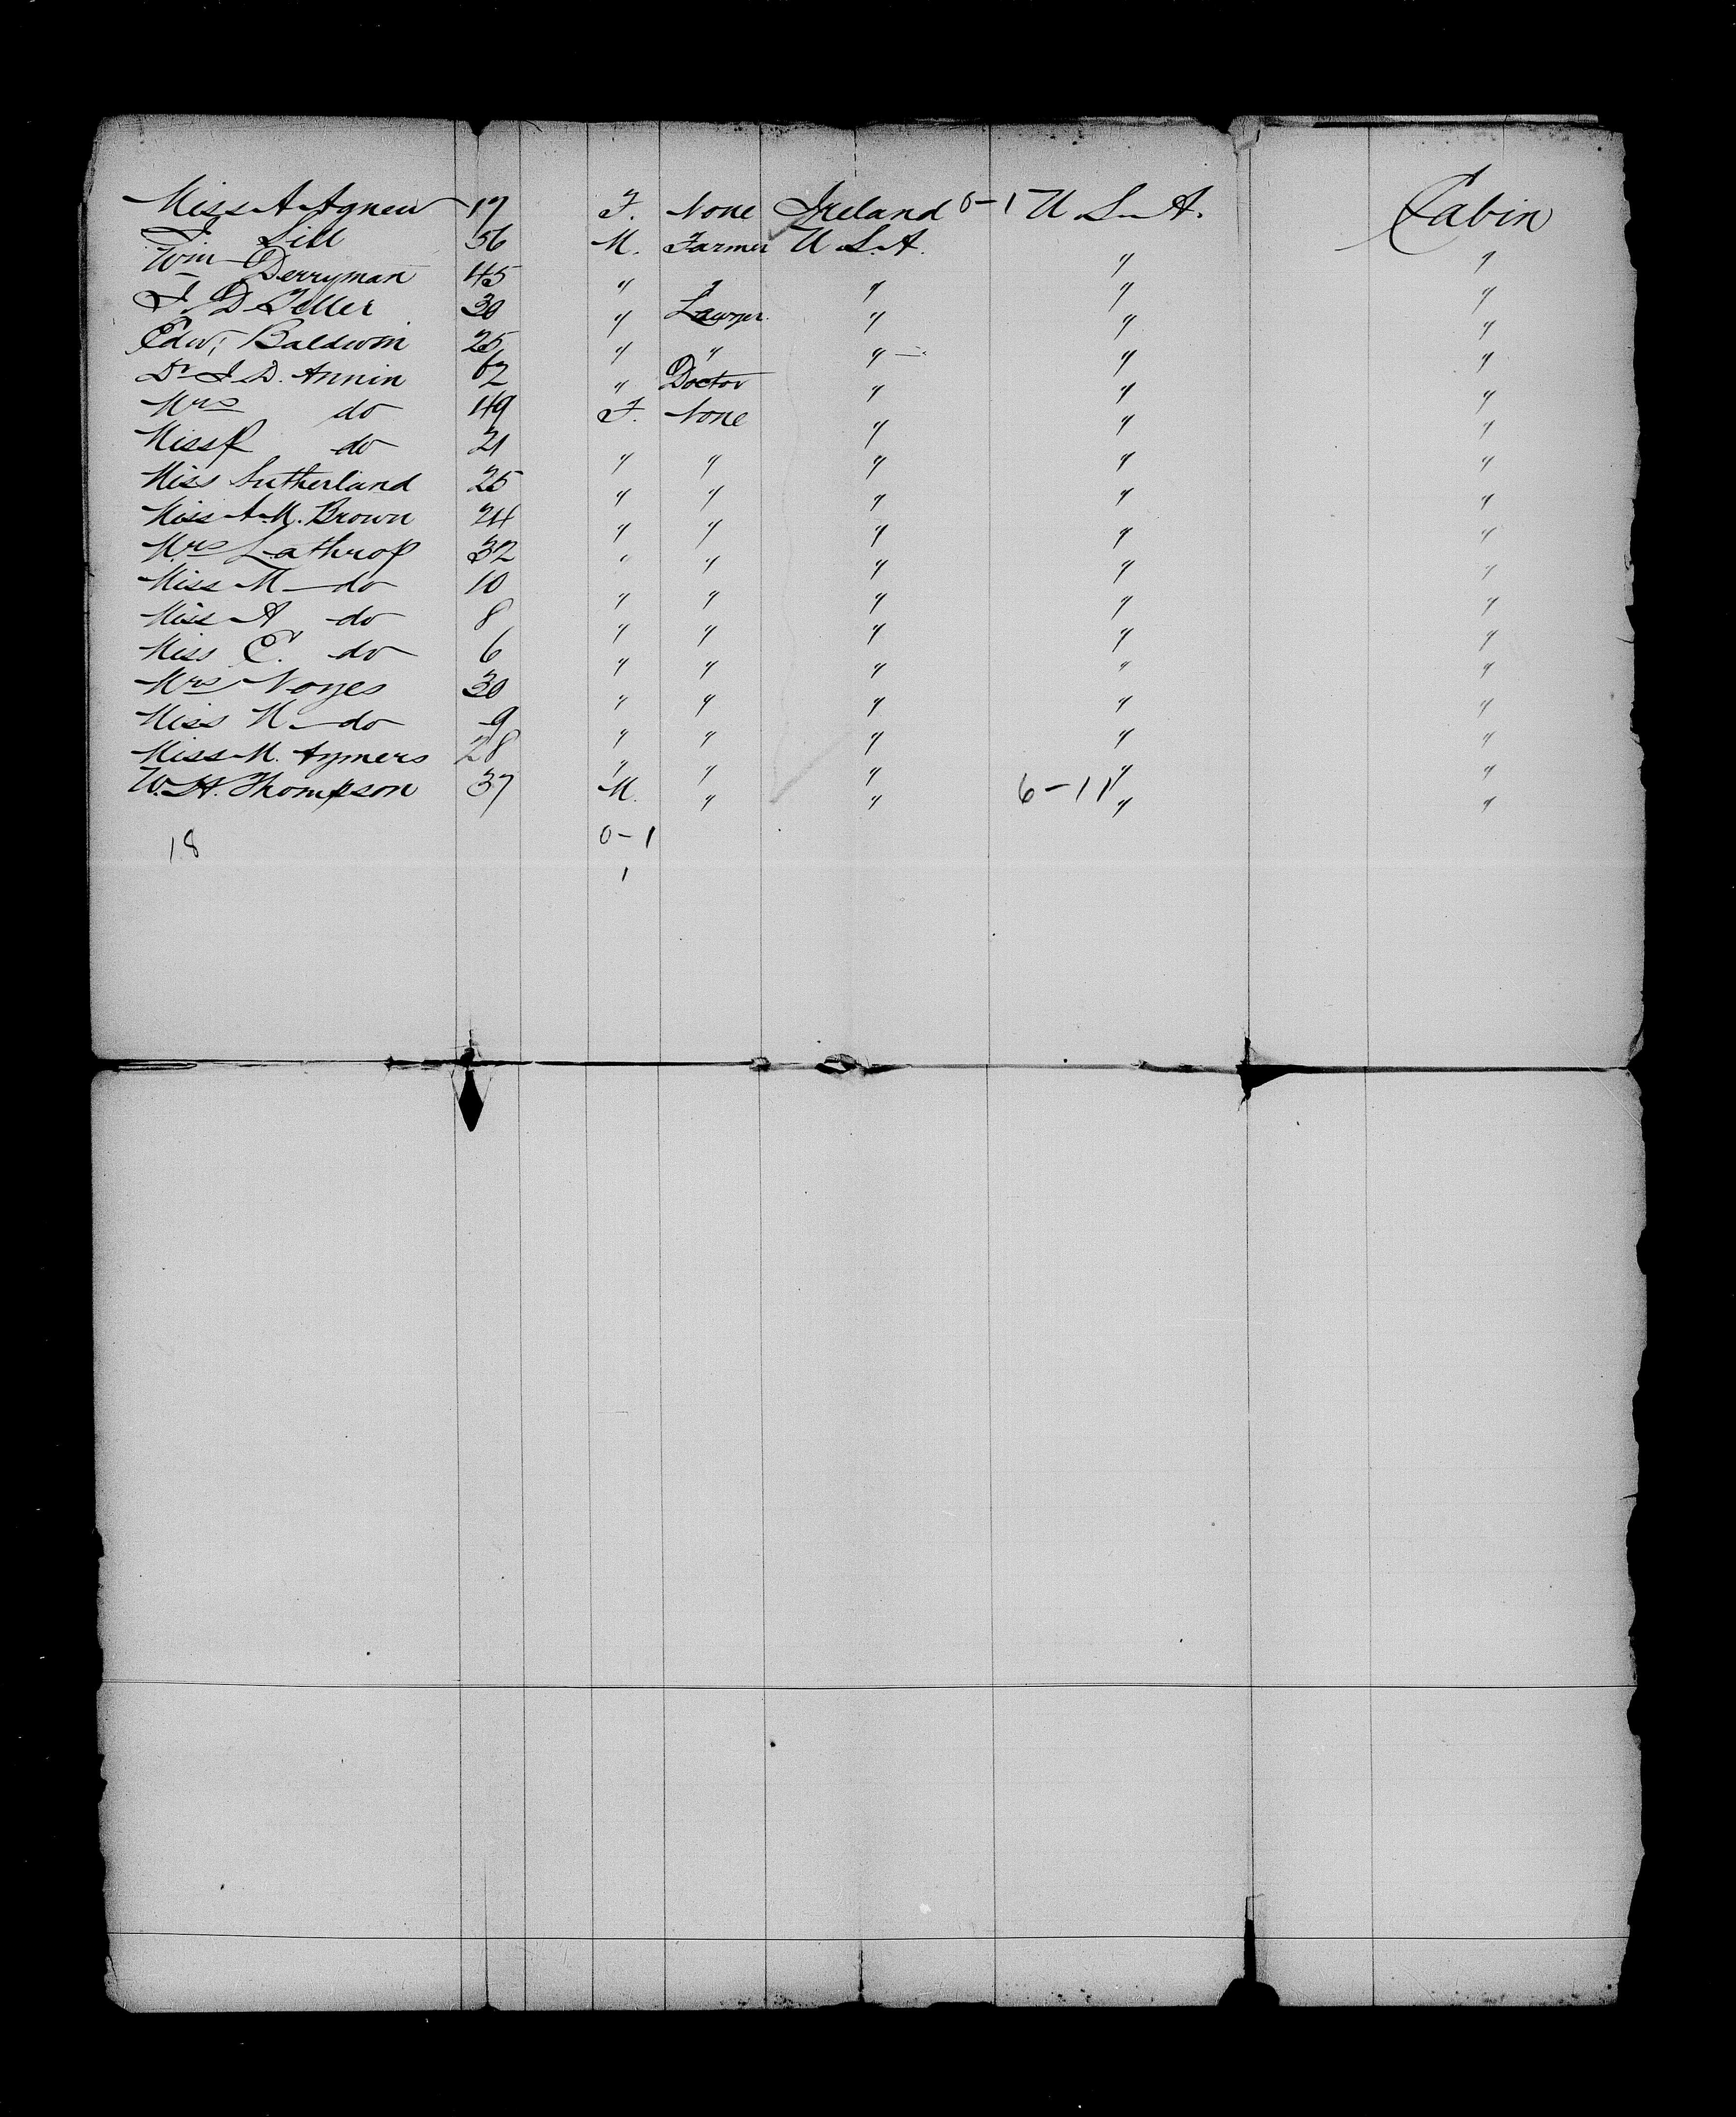 Miss A Agnew 17 F. None Ireland 0-1 U S. A. Cabin
J Sill 56 M. Farmer U S. A. "
Wm Derryman 45 " " " " "
J. D Teller 30 " Lawyer " " "
Edw; Baldwin 25 " " " " "
Dr J D. Annin 62 " Doctor " " "
Mrs do 49 F. None " " "
Miss do 21 " " " " "
Miss Sutherland 25 " " " " "
Miss A. M. Brown 24 " " " " "
Mrs Lathrop 32 " " " " "
Miss M do 10 " " " " "
Miss A do 8 " " " " "
Miss E. do 6 " " " " "
Mrs Noyes 30 " " " " "
Miss do 9 " " " " "
Miss M. Aymers 28 " " " " "
W. H. Thompson 37 M. " " 6-11 " "
18 0-1
1